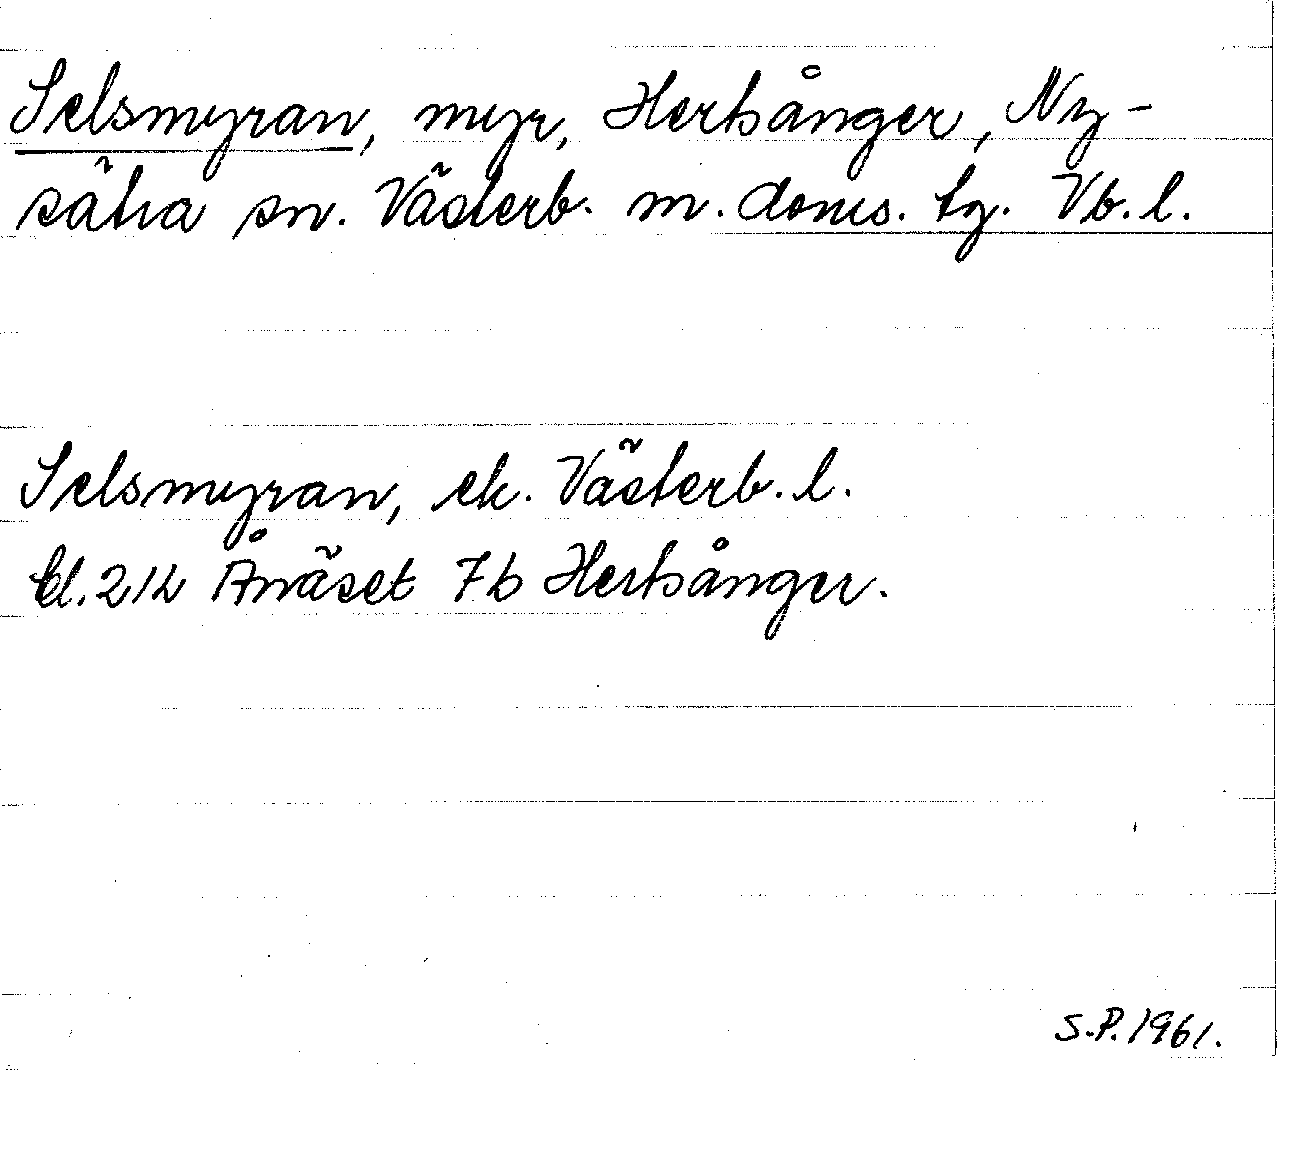 Selsmyran, myr, Hertsånger, Ny-
sätra sn. Västerb. m. doms. tg. Vb. l.
Selsmyran, ek. Västerb. l.
bl. 21k Ånäset 7b Hertsånger.
S.P. 1961.